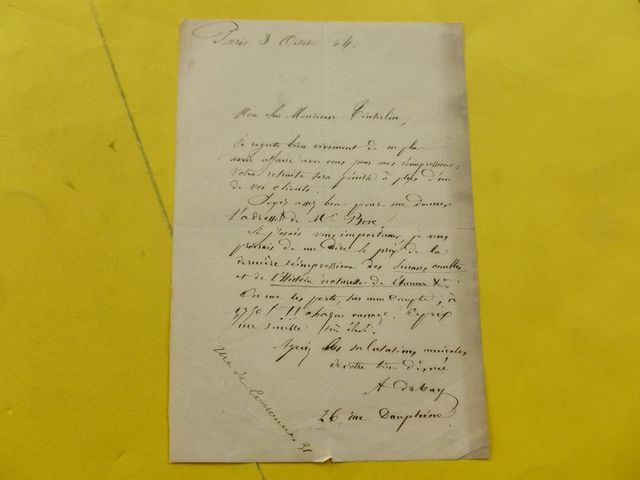 Paris 3 Octobre 64.
Mon cher Monsieur
Je regrette bien vivement de ne plus
avoir affaire avec vous pour mes réimpressions,
Votre retraite sera pénible à plus d'un
de vos clients.
Soyez assez bon pour me donner
l'adresse de Mr Bosc
Si j'osais vous importuner, je vous
prierais de me dire le prix de la
dernière réimpression des
et de l'Histoire naturelle de l'homme &
On me les porte, sur mon compte, à
1750 f !! chaque ouvrage. Ce prix
me semble très élevé.
Agréez les salutations amicales
de votre bien dévoué
A Debay
26, rue Dauphine
rue de